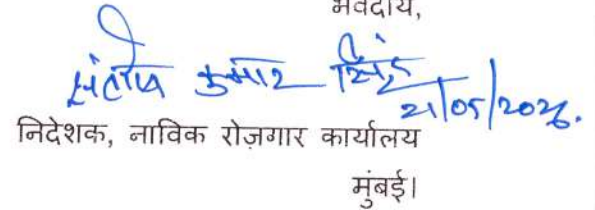 भवदीय,
संतोष कुमार सिंह
21/05/2026.
निदेशक, नाविक रोज़गार कार्यालय
मुंबई।